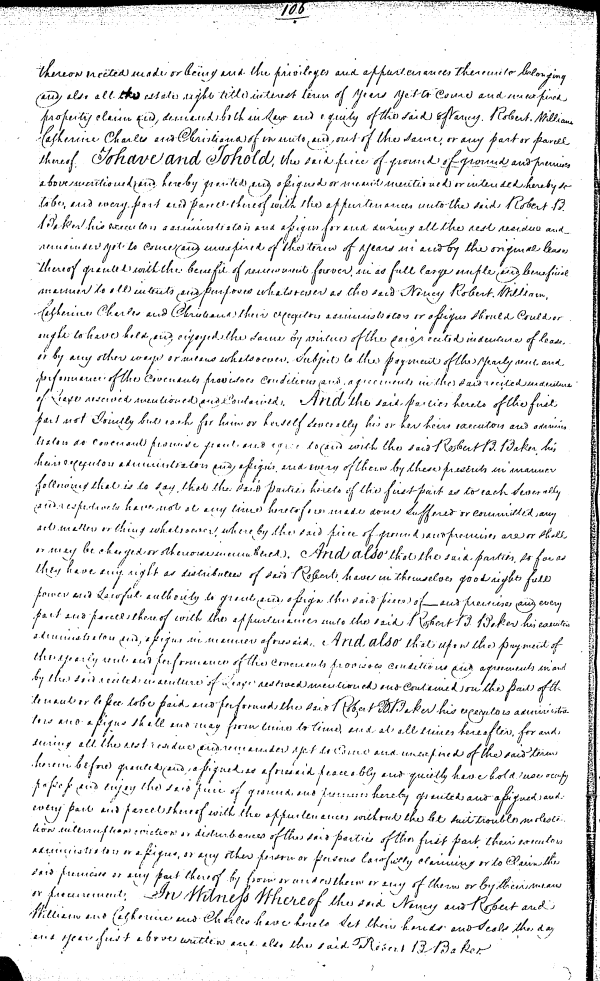 106
thereon erected made or being and the privileges and appurtenances thereunto belonging
and also all the estate right title interest term of years yet to come and unexpired
property claim and demand both in Law and equity of the said Nancy. Robert. William
Catherine Charles and Christiana of in unto and out of the same, or any part or parcel
thereof. To have and To hold, the said piece of ground of ground and premises
above mentioned and hereby granted and assigned or meant mentioned or intended hereby so
to be, and every part and parcel thereof with the appurtenances unto the said Robert B.
Baker his executors administrators and assigns for and during all the rest residue and
remainder yet to come and unexpired of the term of years in and by the original lease
thereof granted with the benefit of renewment forever, in as full large ample and beneficial
manner to all intents and purposes whatsoever as the said Nancy Robert. William.
Catherine Charles and Christiana their executors administrators or assigns should could or
ought to have held and enjoyed the same by virtue of the said recited indenture of lease.
or by any other ways or means whatsoever. Subject to the payment of the yearly rent and
performance of the covenants provisoes conditions and agreements in the said recited indenture
of Lease reserved mentioned and contained. And the said parties hereto of the first
part not Jointly but each for him or herself severally his or her heirs executors and adminis
trators do covenant promise grant and agree to and with the said Robert B. Baker, his
heirs executors administrators and assigns, and every of them by these presents in manner
following that is to say, that the said parties hereto of the first part as to each severally
and respectively have not at any time heretofore made done suffered or committed any
act matter or thing whatsoever, whereby the said piece of ground and premises are or shall
or may be charged or otherwise incumbered. And also that the said parties, so far as
they have any right as distributees of said Robert, have in themselves good right full
power and Lawful authority to grant and assign the said piece of and premises and every
part and parcel thereof with the appurtenances unto the said Robert B. Baker his executors
administrators and assigns in manner aforesaid. And also that upon the payment of
the yearly rent and performance of the covenants provisoes conditions and agreements in and
by the said recited indenture of Lease reserved mentioned and contained on the part of the
tenant or lessee to be paid and performed the said Robert B. Baker his executors administra
tors and assigns shall and may from time to time, and at all times hereafter, for and
during all the rest residue and remainder yet to come and unexpired of the said term
herein before granted and assigned as aforesaid peaceably and quietly have hold use occupy
possess and enjoy the said piece of ground and premises hereby granted and assigned and
every part and parcel thereof with the appurtenances without the let suit trouble molesta
tion interruption eviction or disturbance of the said parties of the first part, their executors
administrators or assigns, or any other person or persons lawfully claiming or to claim the
said premises or any part thereof by from or under them or any of them or by their means
or procurement. In Witness Whereof the said Nancy and Robert and
William and Catherine and Charles have hereto Set their hands and Seals the day
and year first above written and also the said Robert B. Baker